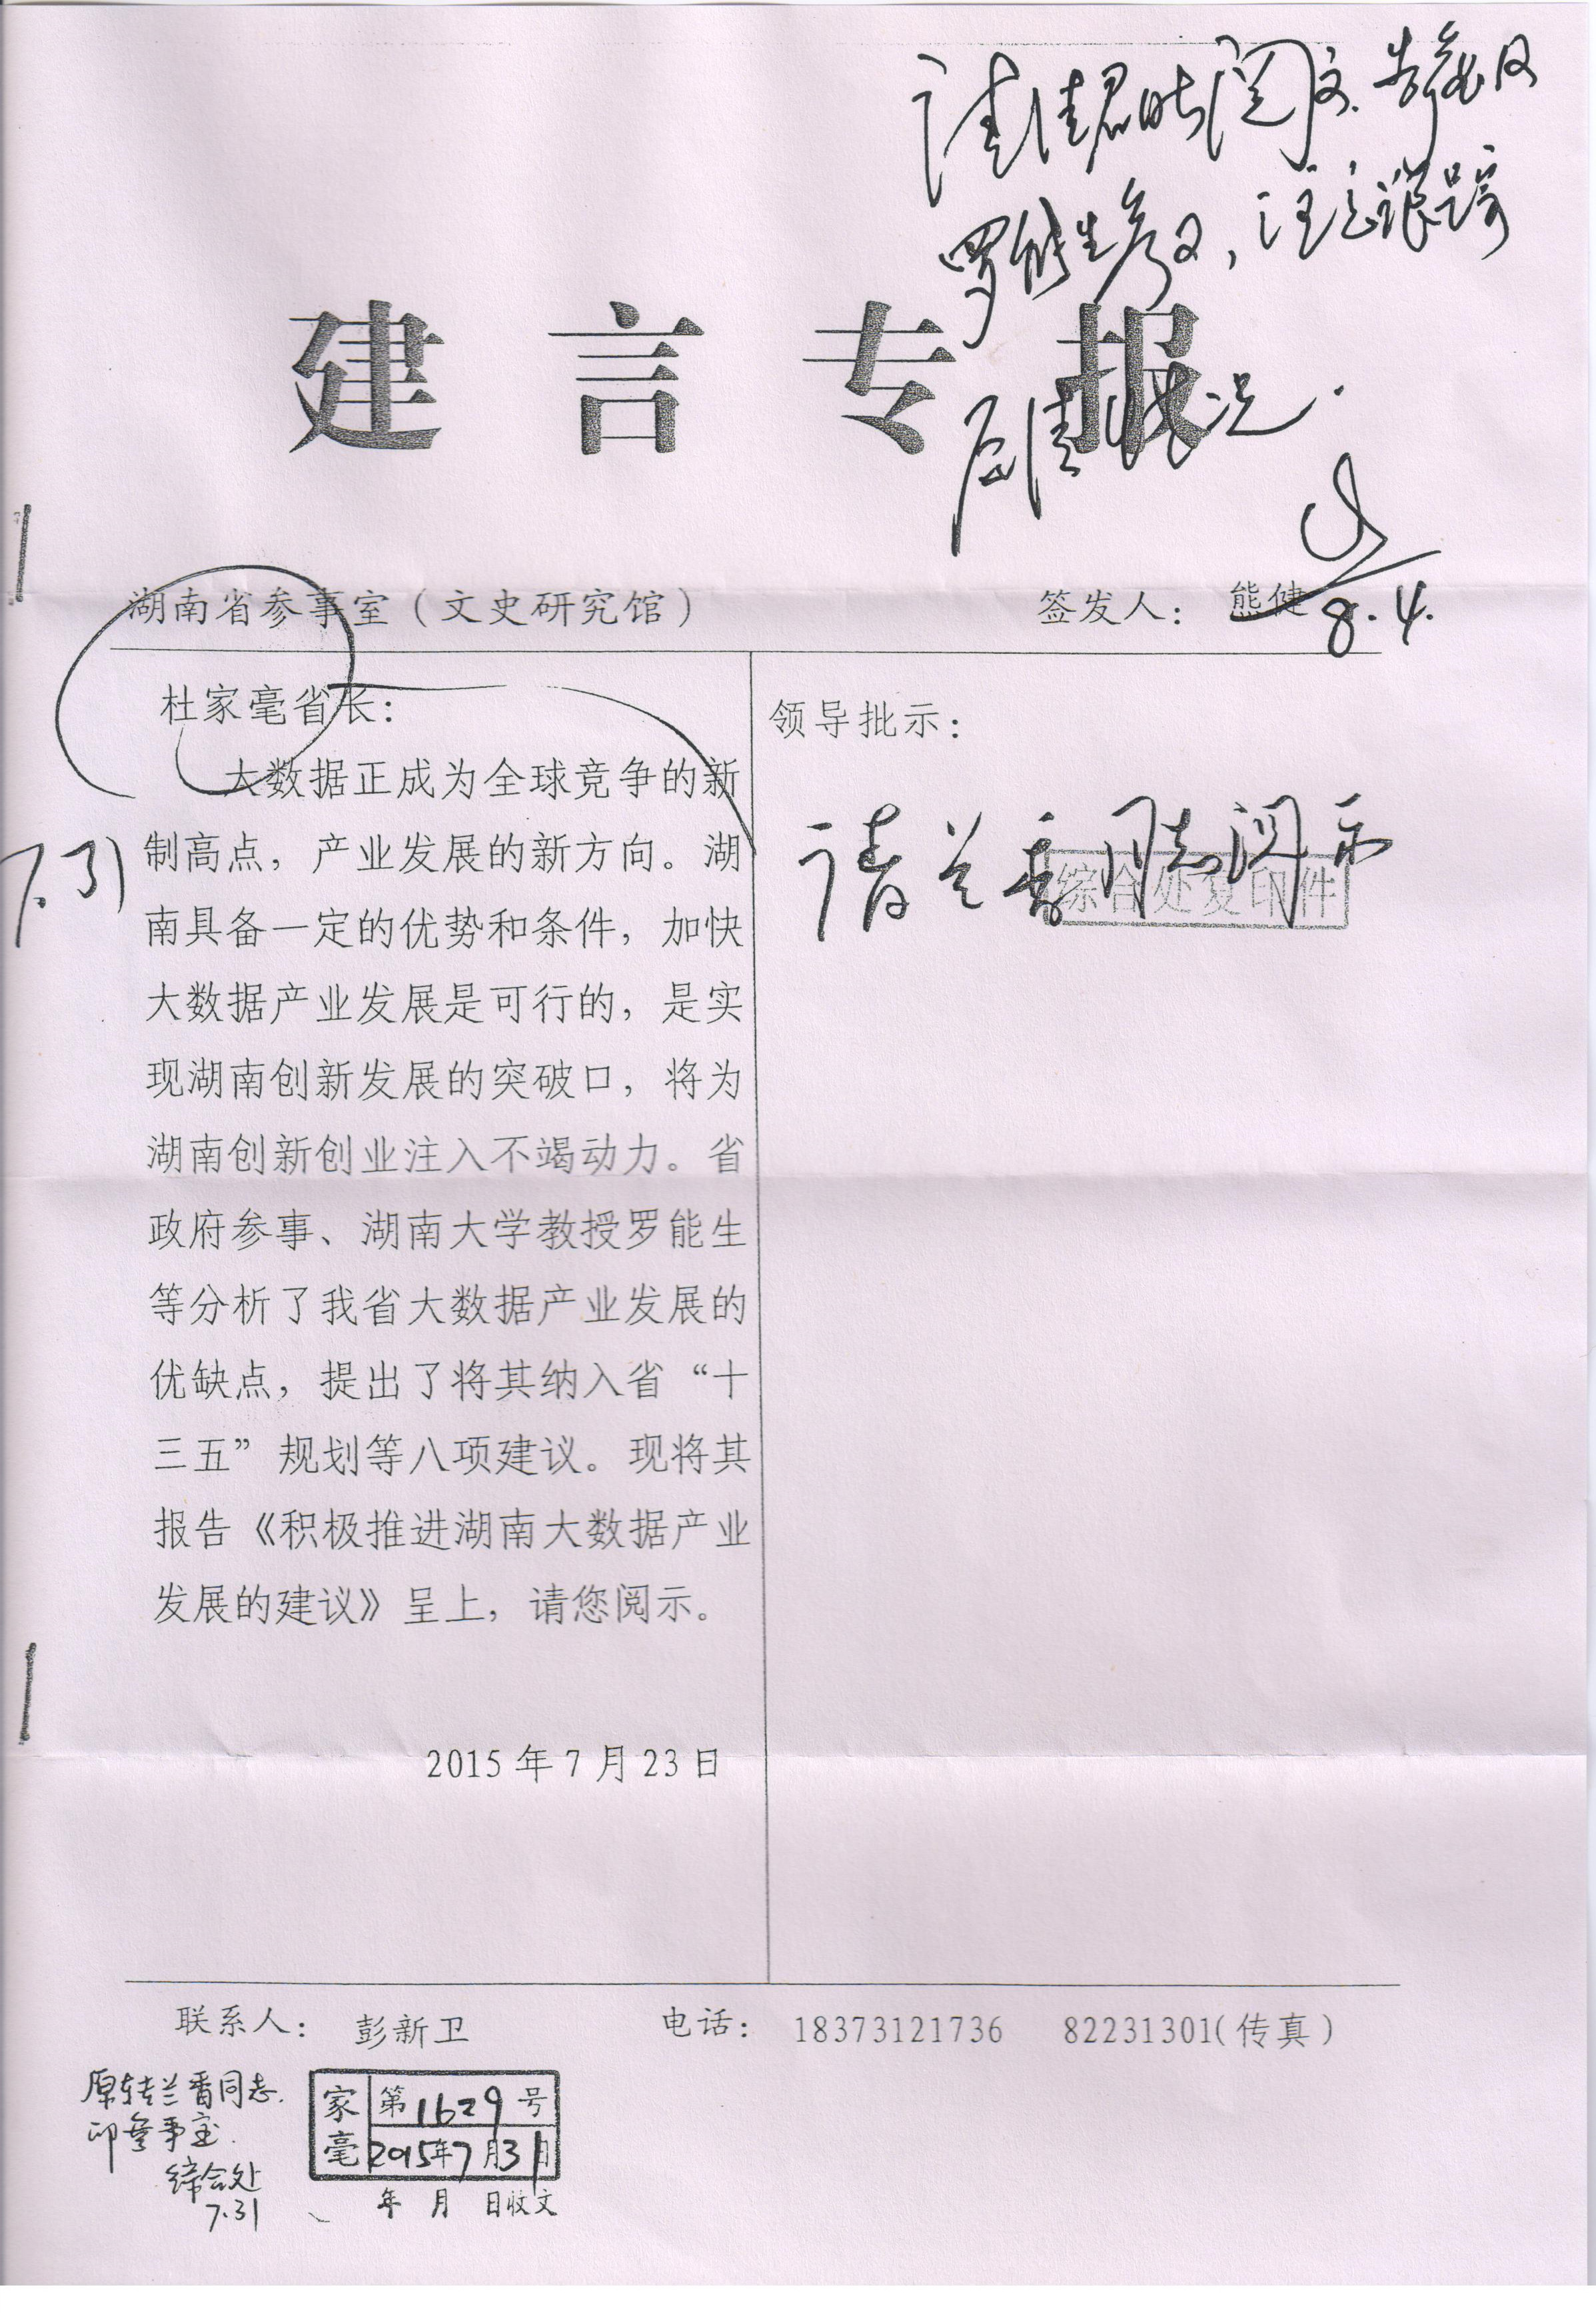 罗能生参阅,注意跟踪
建言专报
后情况.
湖南省参事室(文史研究馆)
签发人: 熊健
8.4.
杜家毫省长:
大数据正成为全球竞争的新
制高点,产业发展的新方向。湖
南具备一定的优势和条件,加快
大数据产业发展是可行的,是实
现湖南创新发展的突破口,将为
湖南创新创业注入不竭动力。省
政府参事、湖南大学教授罗能生
等分析了我省大数据产业发展的
优缺点,提出了将其纳入省“十
三五”规划等八项建议。现将其
报告《积极推进湖南大数据产业
发展的建议》呈上,请您阅示。
2015年7月23日
7.31
领导批示:
请兰香同志阅示
综合处复印件
联系人: 彭新卫
电话: 18373121736 82231301(传真)
原转兰香同志.
印参事室.
综合处
7.31
家毫
第1629号
2015年7月31日
年 月 日收文